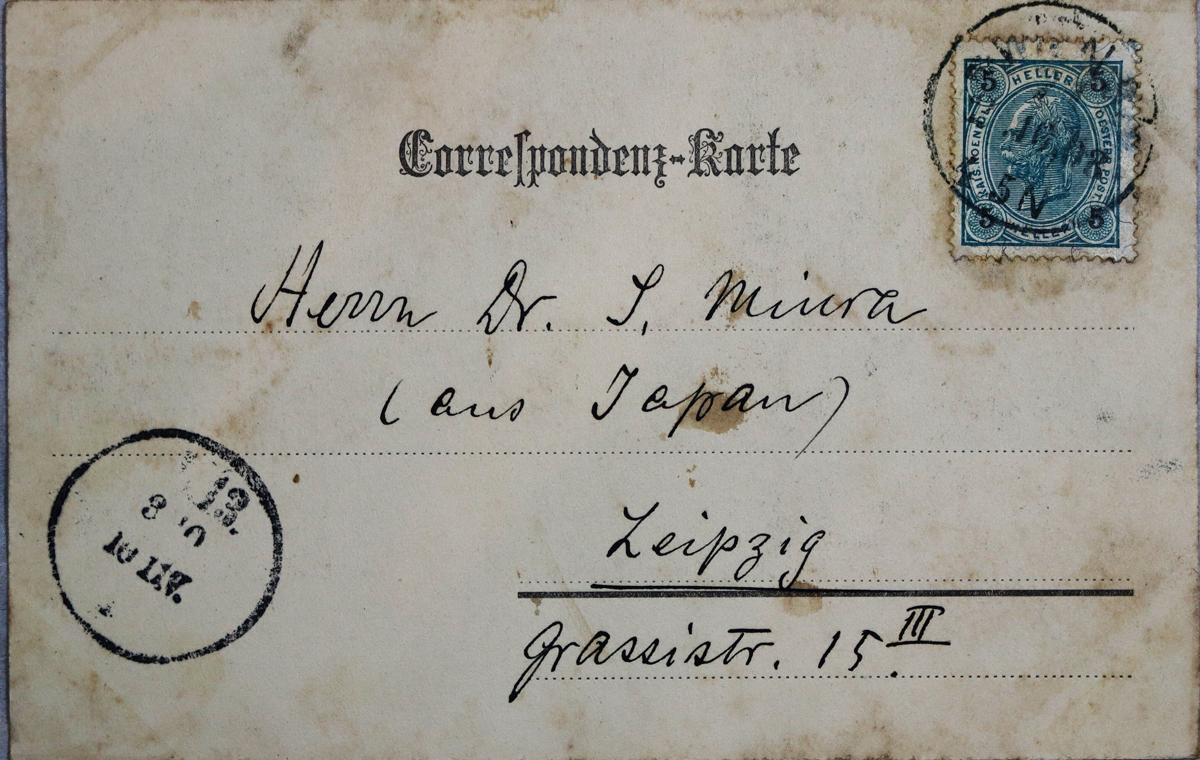 Correspondenz-Karte
5 HELLER 5
KAIS. KOENIGL. OESTERR. POST.
5 HELLER 5
5 N
Herrn Dr. S. Miura
(aus Japan)
Leipzig
Grassistr. 15. III
13.